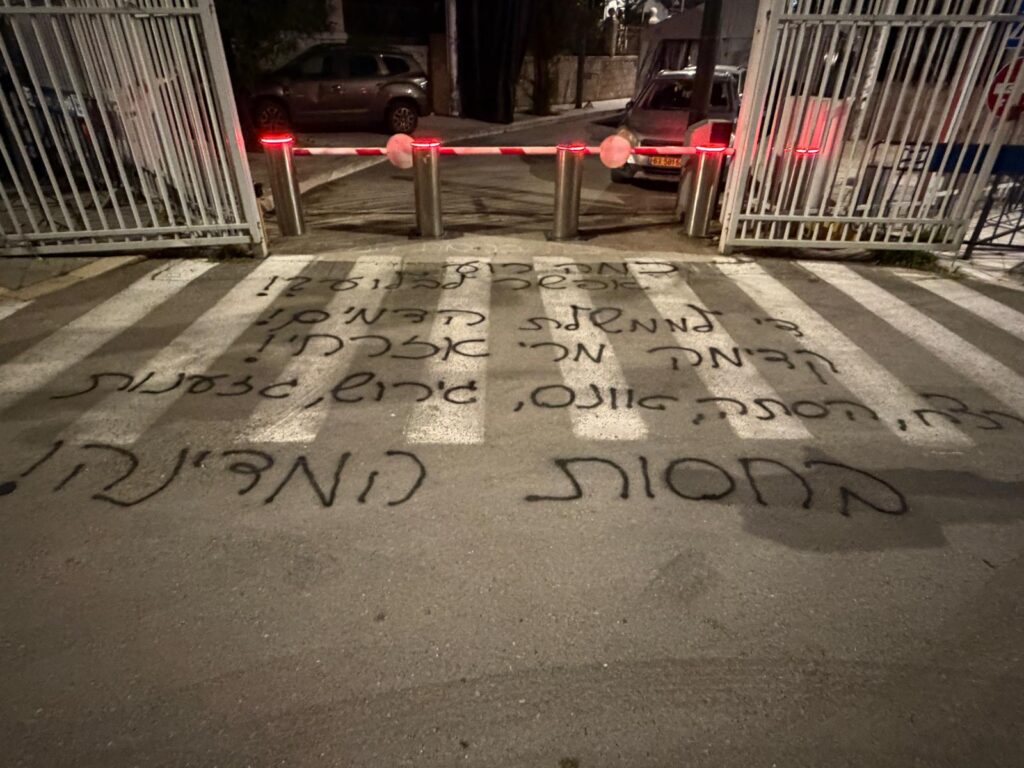 כמה רוע
אפשר לבלוע?!
די לממשלת הדמים!
קדימה מרי אזרחי!
רצח, הסתה, אונס, גירוש, גזענות
בחסות המדינה!